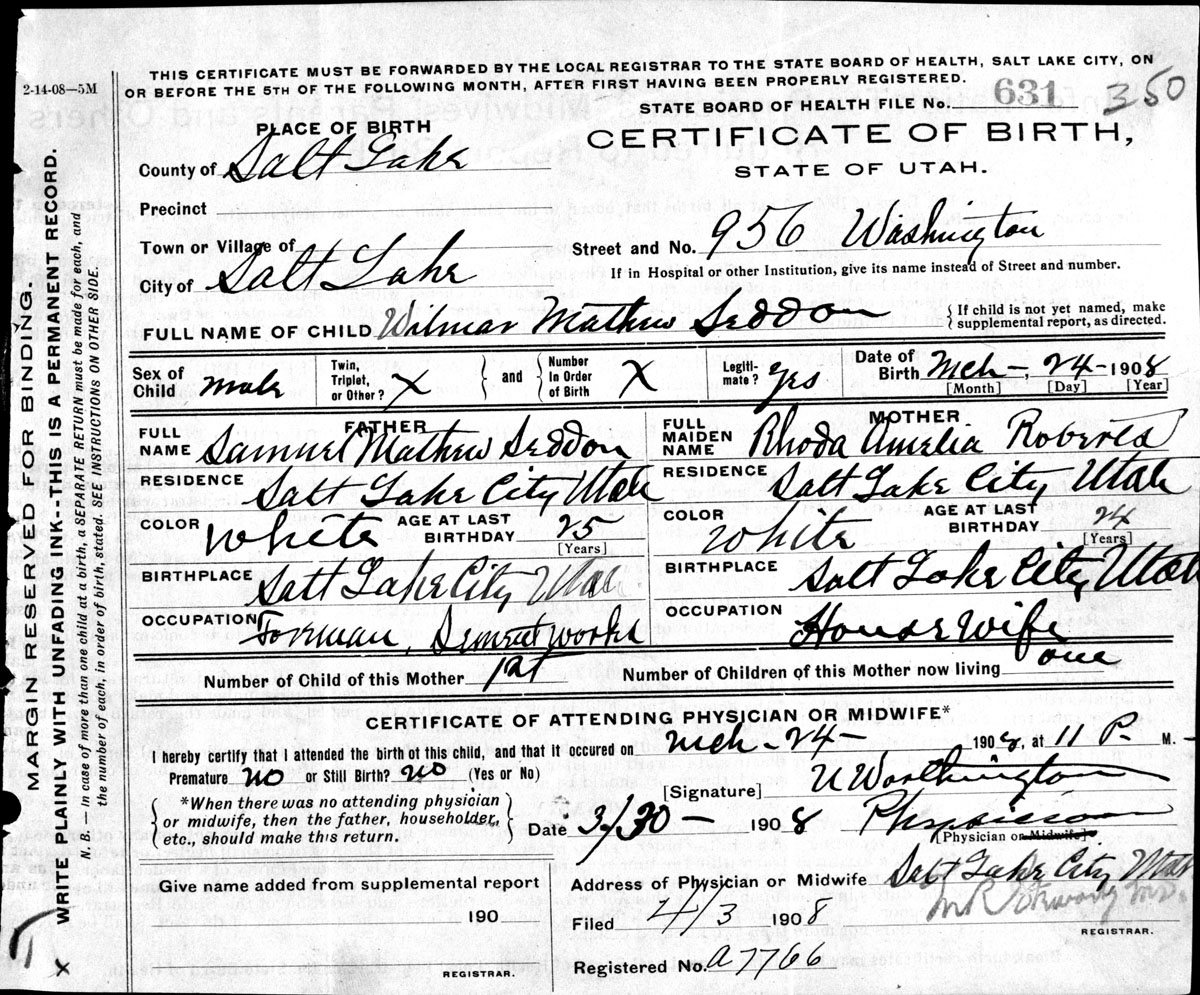 THIS CERTIFICATE MUST BE FORWARDED BY THE LOCAL REGISTRAR TO THE STATE BOARD OF HEALTH, SALT LAKE CITY, ON
2-14-08—5M
OR BEFORE THE 5TH OF THE FOLLOWING MONTH, AFTER FIRST HAVING BEEN PROPERLY REGISTERED.
STATE BOARD OF HEALTH FILE No. 631 350
PLACE OF BIRTH
CERTIFICATE OF BIRTH,
County of Salt Lake
STATE OF UTAH.
Precinct
Town or Village of
Street and No. 956 Washington
City of Salt Lake
If in Hospital or other Institution, give its name instead of Street and number.
FULL NAME OF CHILD Wilmar Mathew Seddon { If child is not yet named, make
supplemental report, as directed.
Sex of Child male Twin, Triplet, or Other? X } and { Number In Order of Birth X Legiti-mate? Yes Date of Birth Mch - 24 - 1908
[Month] [Day] [Year]
FATHER
MOTHER
FULL NAME Samuel Mathew Seddon
FULL MAIDEN NAME Rhoda Amelia Roberts
RESIDENCE Salt Lake City Utah
RESIDENCE Salt Lake City, Utah
COLOR White AGE AT LAST BIRTHDAY 25 [Years]
COLOR White AGE AT LAST BIRTHDAY 24 [Years]
BIRTHPLACE Salt Lake City Utah
BIRTHPLACE Salt Lake City, Utah
OCCUPATION Forman, works
OCCUPATION House Wife
Number of Child of this Mother 1st Number of Children of this Mother now living one
CERTIFICATE OF ATTENDING PHYSICIAN OR MIDWIFE*
I hereby certify that I attended the birth of this child, and that it occured on Mch - 24 - 1908, at 11 P. M.
Premature No or Still Birth? No (Yes or No)
[Signature] U Worthington
{ *When there was no attending physician
or midwife, then the father, householder,
etc., should make this return. }
Date 3/30 - 1908 Physician
(Physician or Midwife)
Give name added from supplemental report
Address of Physician or Midwife Salt Lake City Utah
190
Filed 4/3 1908
REGISTRAR.
REGISTRAR.
Registered No. a7766
MARGIN RESERVED FOR BINDING.
WRITE PLAINLY WITH UNFADING INK---THIS IS A PERMANENT RECORD.
N. B. — In case of more than one child at a birth, a SEPARATE RETURN must be made for each, and
the number of each, in order of birth, stated. SEE INSTRUCTIONS ON OTHER SIDE.
X